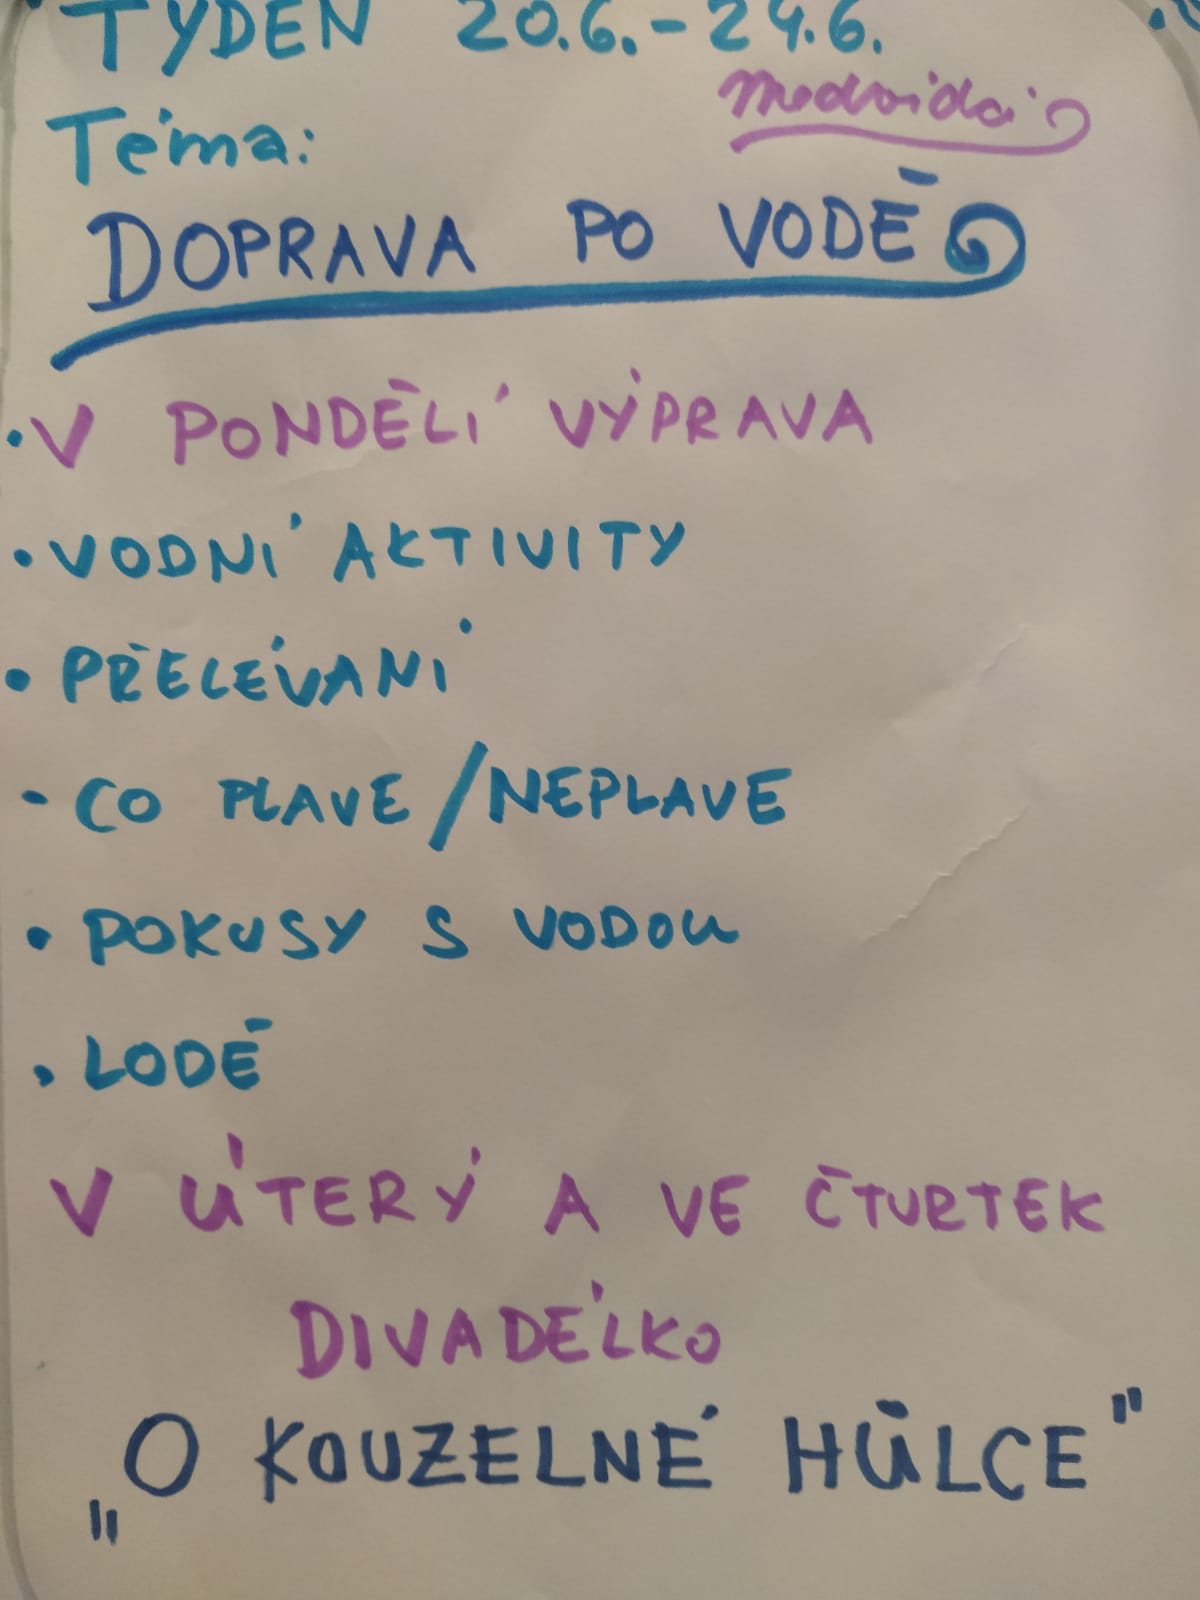 TÝDEN 20.6.-24.6.
Téma:
Medvídci
DOPRAVA PO VODĚ
• V PONDĚLÍ VÝPRAVA
• VODNÍ AKTIVITY
• PŘELÉVÁNÍ
- CO PLAVE/NEPLAVE
• POKUSY S VODOU
• LODĚ
V ÚTERÝ A VE ČTVRTEK
DIVADÉLKO
„O KOUZELNÉ HŮLCE"